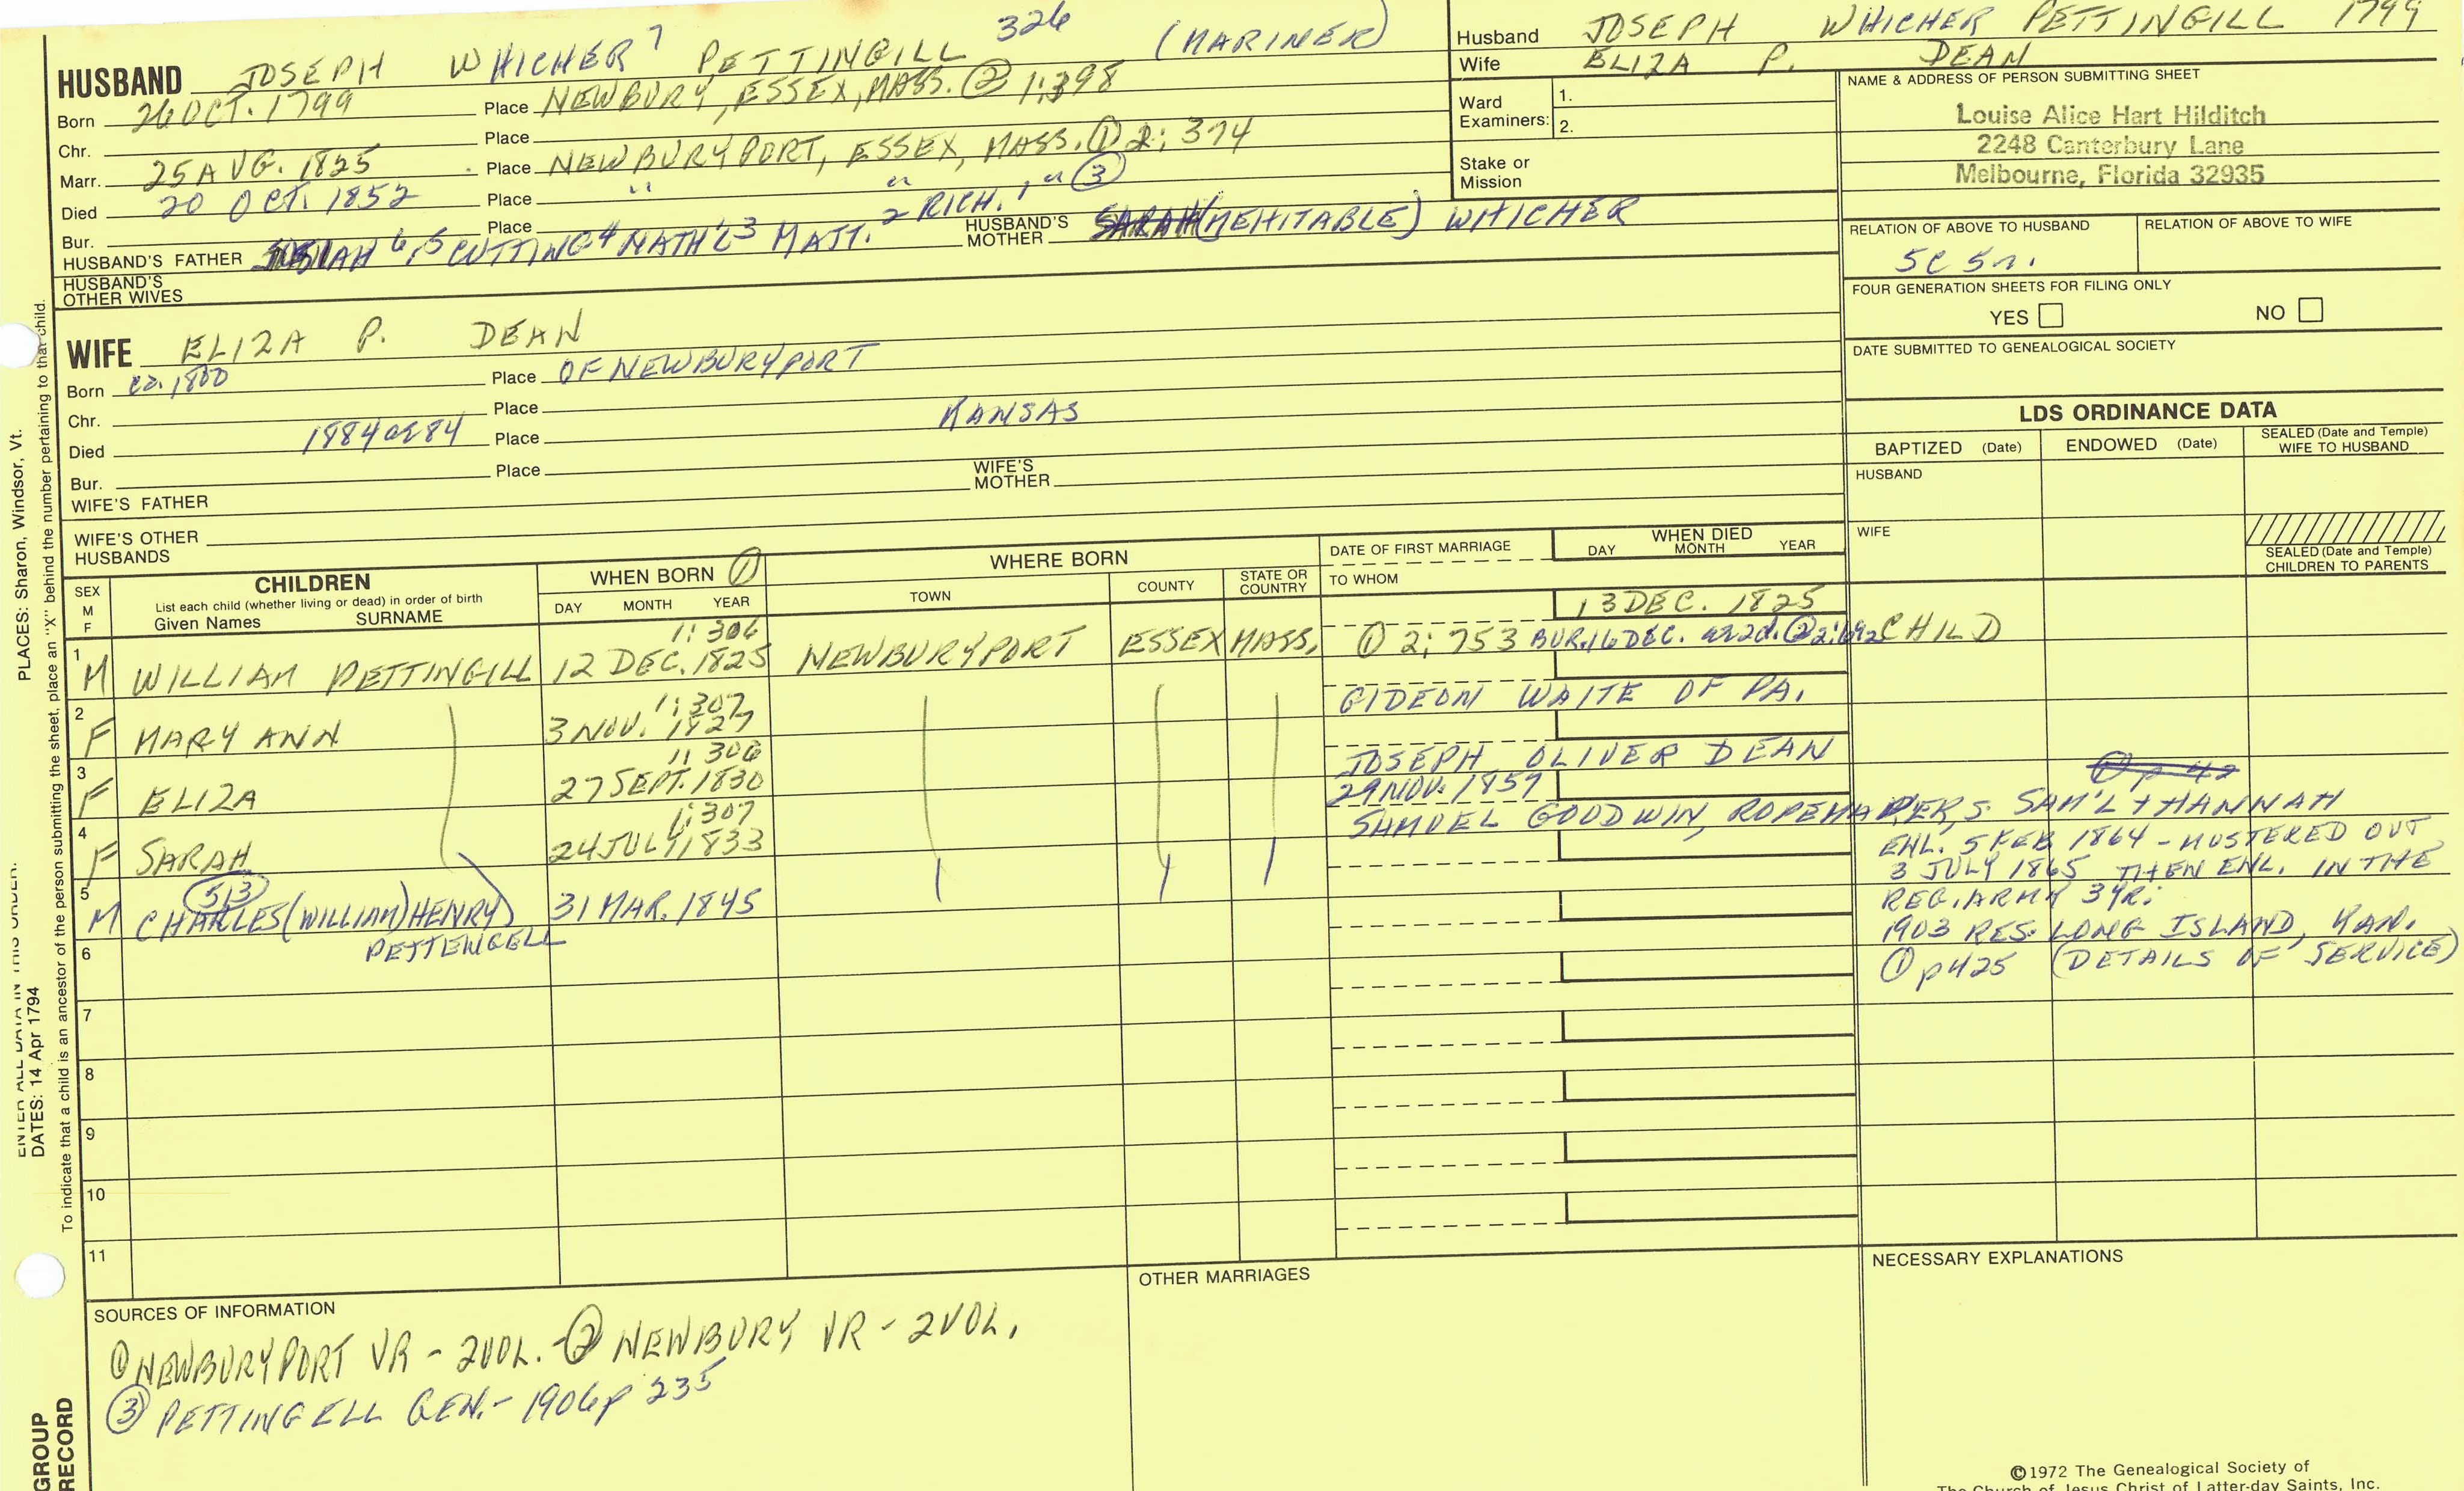 HUSBAND JOSEPH WHICHER 7 PETTINGILL 326 (MARINER)
Born 26 OCT. 1799 Place NEWBURY, ESSEX, MASS. ② 1:398
Chr. Place
Marr. 25 AUG. 1825 Place NEWBURYPORT, ESSEX, MASS. ① 2: 374
Died 20 OCT. 1852 Place " " " ③
Bur. Place
HUSBAND'S FATHER 6, 5 CUTTING 4 NATH'L 3 MATT. 2 RICH. 1 HUSBAND'S MOTHER SARAH (MEHITABLE) WHICHER
HUSBAND'S OTHER WIVES
WIFE ELIZA P. DEAN
Born ca. 1800 Place OF NEWBURYPORT
Chr. Place
Died 1884 Place KANSAS
Bur. Place
WIFE'S FATHER WIFE'S MOTHER
WIFE'S OTHER HUSBANDS
Husband JOSEPH WHICHER PETTINGILL 1799
Wife ELIZA P. DEAN
Ward Examiners: 1.
2.
Stake or Mission
NAME & ADDRESS OF PERSON SUBMITTING SHEET
Louise Alice Hart Hilditch
2248 Canterbury Lane
Melbourne, Florida 32935
RELATION OF ABOVE TO HUSBAND RELATION OF ABOVE TO WIFE
5C 5r.
FOUR GENERATION SHEETS FOR FILING ONLY
YES NO
DATE SUBMITTED TO GENEALOGICAL SOCIETY
LDS ORDINANCE DATA
BAPTIZED (Date) ENDOWED (Date) SEALED (Date and Temple) WIFE TO HUSBAND
HUSBAND
WIFE
SEALED (Date and Temple) CHILDREN TO PARENTS
SEX M F CHILDREN WHEN BORN ① WHERE BORN DATE OF FIRST MARRIAGE WHEN DIED
List each child (whether living or dead) in order of birth
Given Names SURNAME DAY MONTH YEAR TOWN COUNTY STATE OR COUNTRY TO WHOM DAY MONTH YEAR
13 DEC. 1825
1: 306
1 M WILLIAM PETTINGILL 12 DEC. 1825 NEWBURYPORT ESSEX MASS. ① 2: 753 BUR. 16 DEC. ae 2d. ② 2:692 CHILD
1: 307
2 F MARY ANN 3 NOV. 1827 GIDEON WAITE OF PA.
1: 306
3 F ELIZA 27 SEPT. 1830 JOSEPH OLIVER DEAN
① p 42
1:307
29 NOV. 1859
4 F SARAH 24 JULY 1833 SAMUEL GOODWIN, ROPEMAKER, S. SAM'L + HANNAH
513
5 M CHARLES (WILLIAM) HENRY) 31 MAR. 1845
PETTENGELL
ENL. 5 FEB 1864 - MUSTERED OUT
3 JULY 1865 THEN ENL. IN THE
REG. ARMY 3 YR:
1903 RES. LONG ISLAND, KAN.
① p 425 (DETAILS OF SERVICE)
6
7
8
9
10
11
SOURCES OF INFORMATION
① NEWBURYPORT VR - 2 VOL. - ② NEWBURY VR - 2 VOL.
③ PETTINGELL GEN. - 1906 p 235
OTHER MARRIAGES
NECESSARY EXPLANATIONS
©1972 The Genealogical Society of
The Church of Jesus Christ of Latter-day Saints, Inc.
PLACES: Sharon, Windsor, Vt.
ENTER ALL DATA IN THIS ORDER:
DATES: 14 Apr 1794
To indicate that a child is an ancestor of the person submitting the sheet, place an "X" behind the number pertaining to that child.
GROUP
RECORD